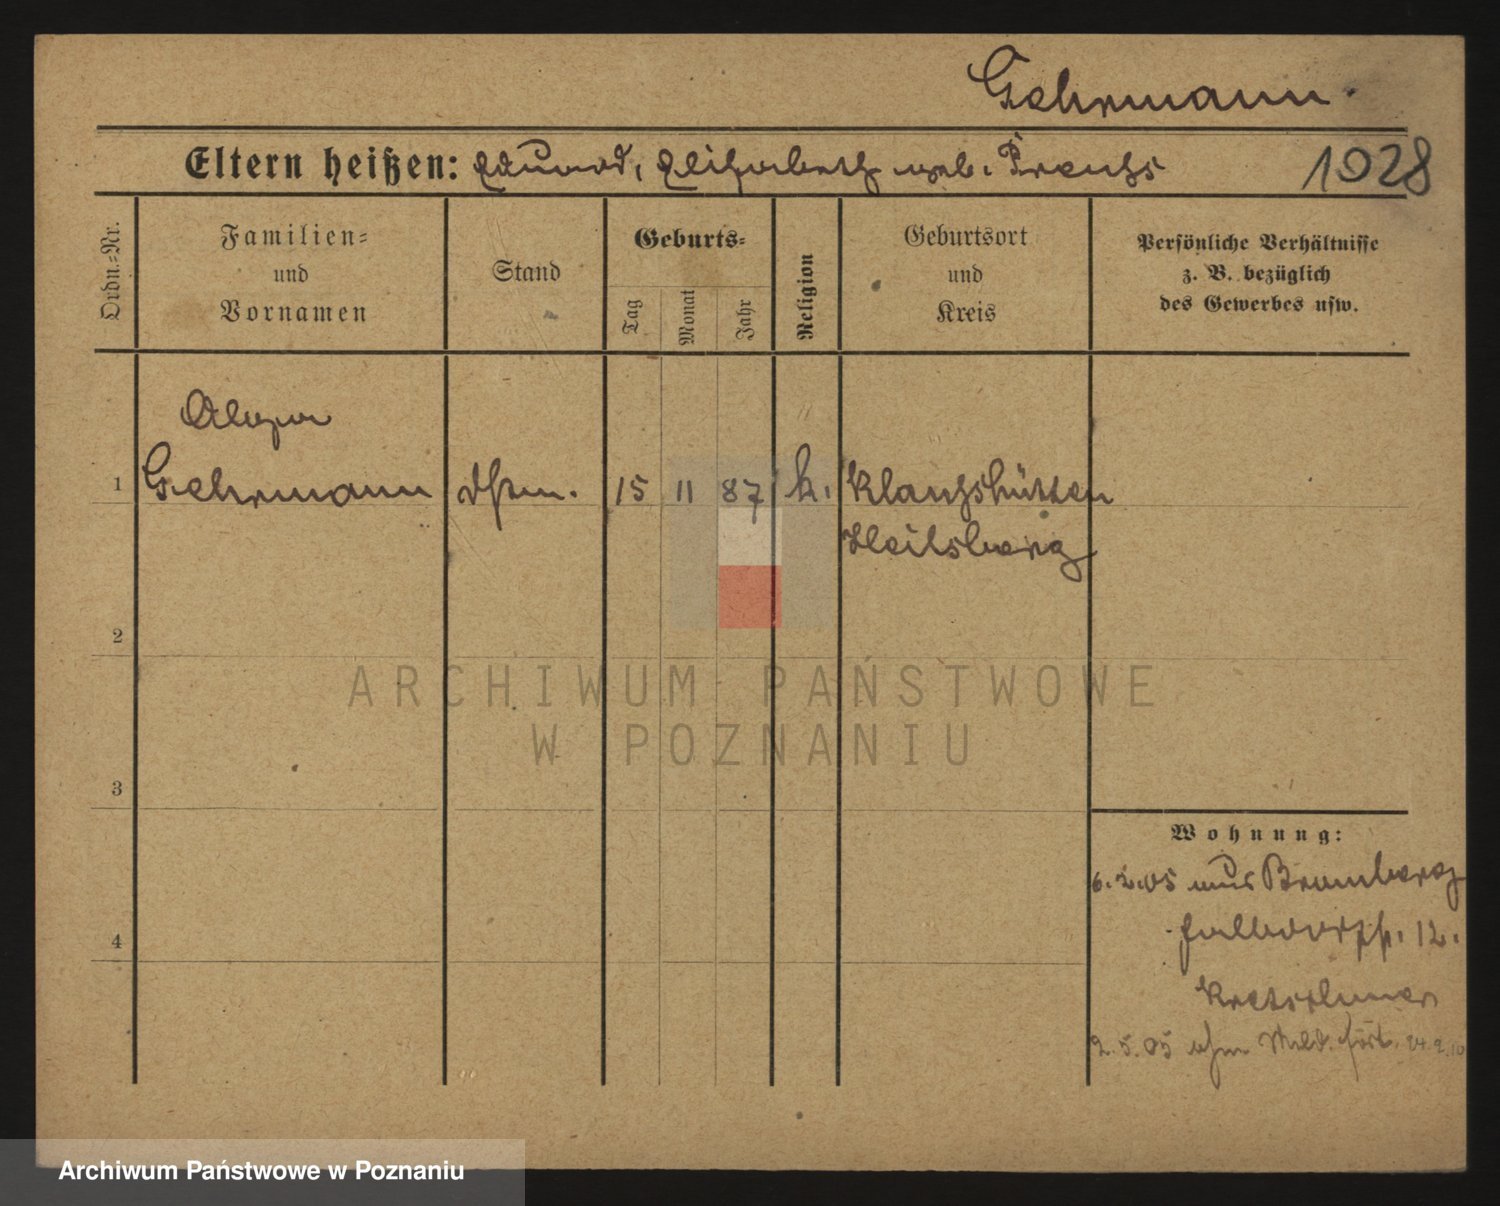 Gehrmann.
Eltern heißen: Eduard, Elisabeth geb. Preuhs
1028
Ordn.-Nr.
Familien-
und
Vornamen
Stand
Geburts-
Tag
Monat
Jahr
Religion
Geburtsort
und
Kreis
Persönliche Verhältnisse
z. B. bezüglich
des Gewerbes usw.
1
Gehrmann
15
11
87
k.
Klaughütten
Heilsberg
2
3
4
ARCHIWUM PAŃSTWOWE
W POZNANIU
Wohnung:
6.2.05 aus Bromberg
12.
Kretschmer
2.5.05 ohne Meld. fort. 24.2.10
Archiwum Państwowe w Poznaniu